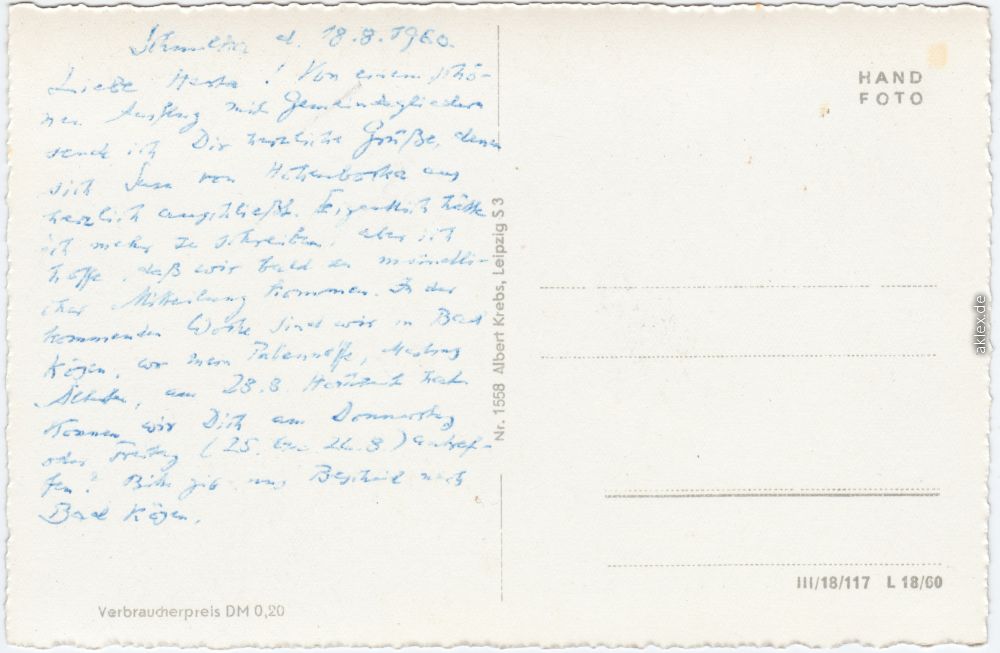 d. 18.8.1960.
Liebe Herta! Von einem schö-
nen Ausflug mit Gemeindegliedern
sende ich Dir herzliche Grüße, denen
sich von Hohenbocka aus
herzlich anschließt. Eigentlich hätte
ich mehr zu schreiben, aber ich
hoffe, daß wir bald zu mündli-
cher Mitteilung kommen. In der
kommenden Woche sind wir in Bad
Kösen, wo mein Patenneffe,
am 23.8. Hochzeit
Können wir Dich am Donnerstag
oder Freitag (25. 26.8) antref-
fen? Bitte gib uns Bescheid nach
Bad Kösen.
Verbraucherpreis DM 0,20
Nr. 1558 Albert Krebs, Leipzig S 3
HAND
FOTO
III/18/117 L 18/60
aklex.de